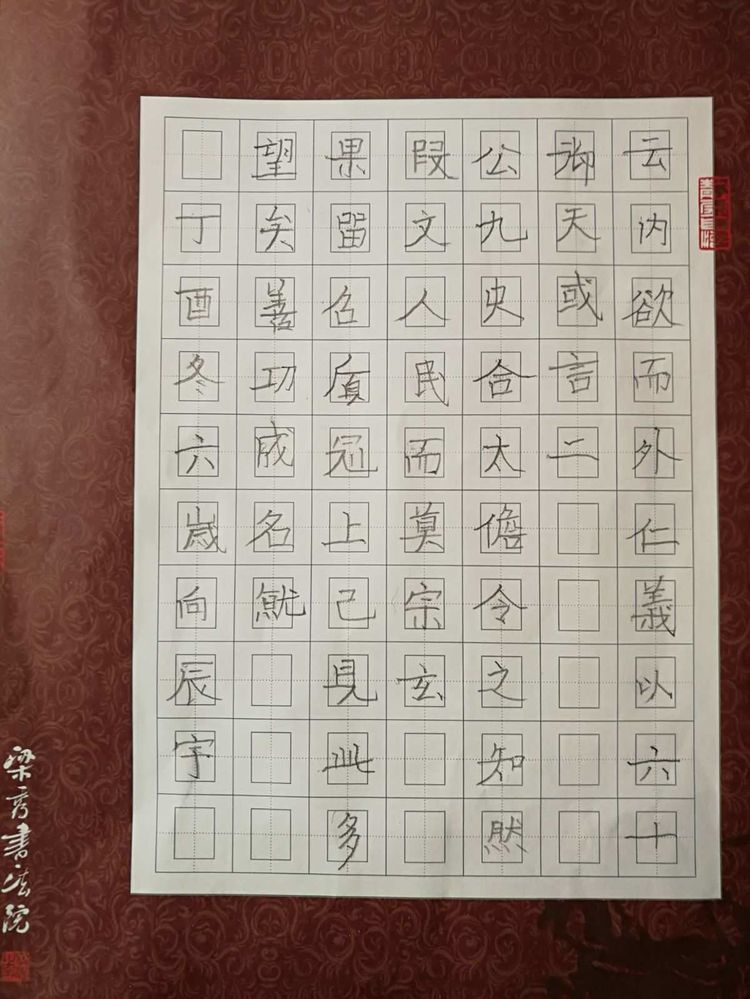 云内欲而外仁義以六十
天或言二
公九史合太儋令之知然
段文人民而莫宗玄
果留名質冠上己見此多
望矣善功成名就
丁酉冬六歲向辰宇
梁秀書法院